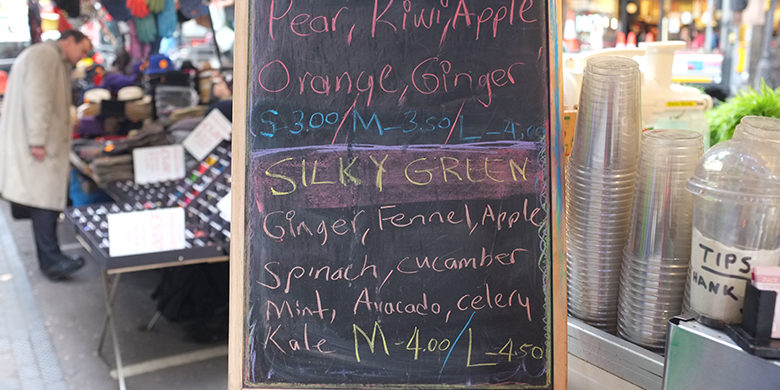 Pear, Kiwi, Apple
Orange, Ginger
S-3.00/M-3.50/L-4.00
SILKY GREEN
Ginger, Fennel, Apple
Spinach, cucamber
Mint, Avacado, celery
Kale M-4.00/L-4.50
TIPS